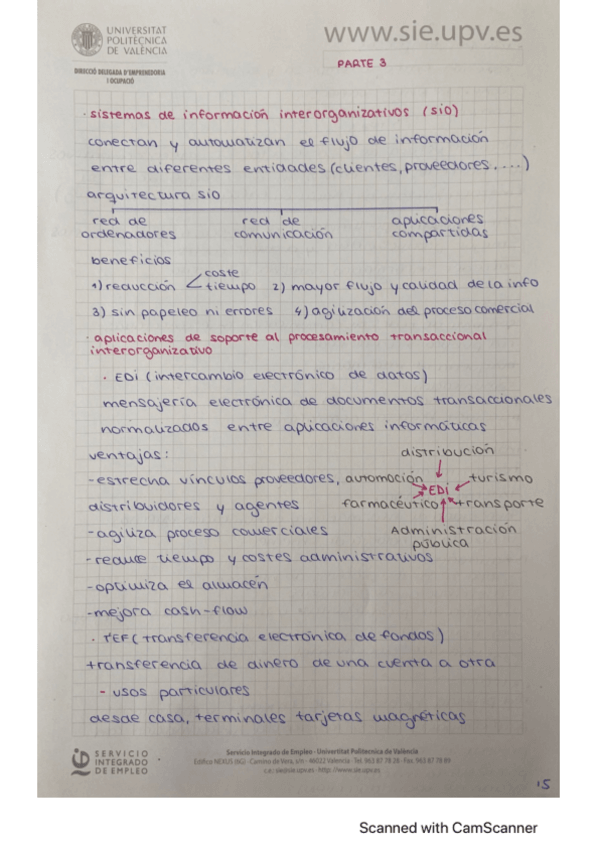 UNIVERSITAT
POLITÈCNICA
DE VALÈNCIA
DIRECCIÓ DELEGADA D'EMPRENEDORIA
I OCUPACIÓ
www.sie.upv.es
PARTE 3
· sistemas de información interorganizativos (SIO)
conectan y automatizan el flujo de información
entre diferentes entidades (clientes, proveedores ....)
arquitectura SIO
red de ordenadores
red de comunicación
aplicaciones compartidas
beneficios
1) reducción < coste tiempo 2) mayor flujo y calidad de la info
3) sin papeleo ni errores 4) agilización del proceso comercial
· aplicaciones de soporte al procesamiento transaccional
interorganizativo
· EDI (intercambio electrónico de datos)
mensajería electrónica de documentos transaccionales
normalizados entre aplicaciones informáticas
ventajas:
-estrecha vínculos proveedores,
distribuidores y agentes
distribución
automoción
EDI
turismo
farmacéutico
transporte
Administración
pública
-agiliza proceso comerciales
-reduce tiempo y costes administrativos
-optimiza el almacén
-mejora cash-flow
· TEF (transferencia electrónica de fondos)
transferencia de dinero de una cuenta a otra
- usos particulares
desde casa, terminales tarjetas magnéticas
SERVICIO
INTEGRADO
DE EMPLEO
Servicio Integrado de Empleo · Universitat Politècnica de València
Edificio NEXUS (6G) · Camino de Vera, s/n · 46022 Valencia · Tel. 963 87 78 28 · Fax 963 87 78 89
c.e.: sie@sie.upv.es · http: //www.sie.upv.es
15
Scanned with CamScanner